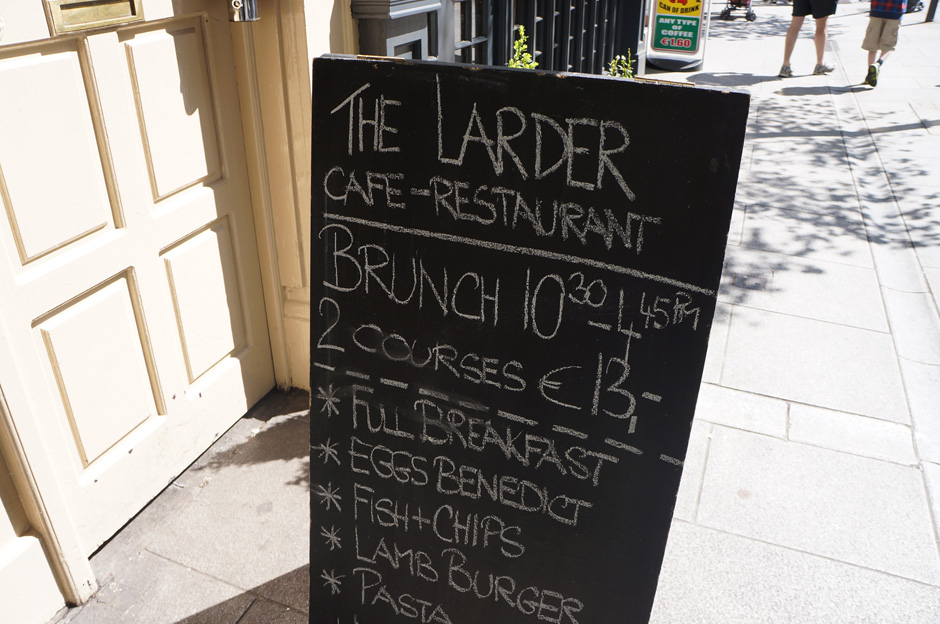 CAN OF DRINK
ANY TYPE
OF
COFFEE
€1.60
THE LARDER
CAFE - RESTAURANT
BRUNCH 10 30 - 4 45 PM
2 COURSES € 13,-
* FULL BREAKFAST
* EGGS BENEDICT
* FISH + CHIPS
* LAMB BURGER
* PASTA